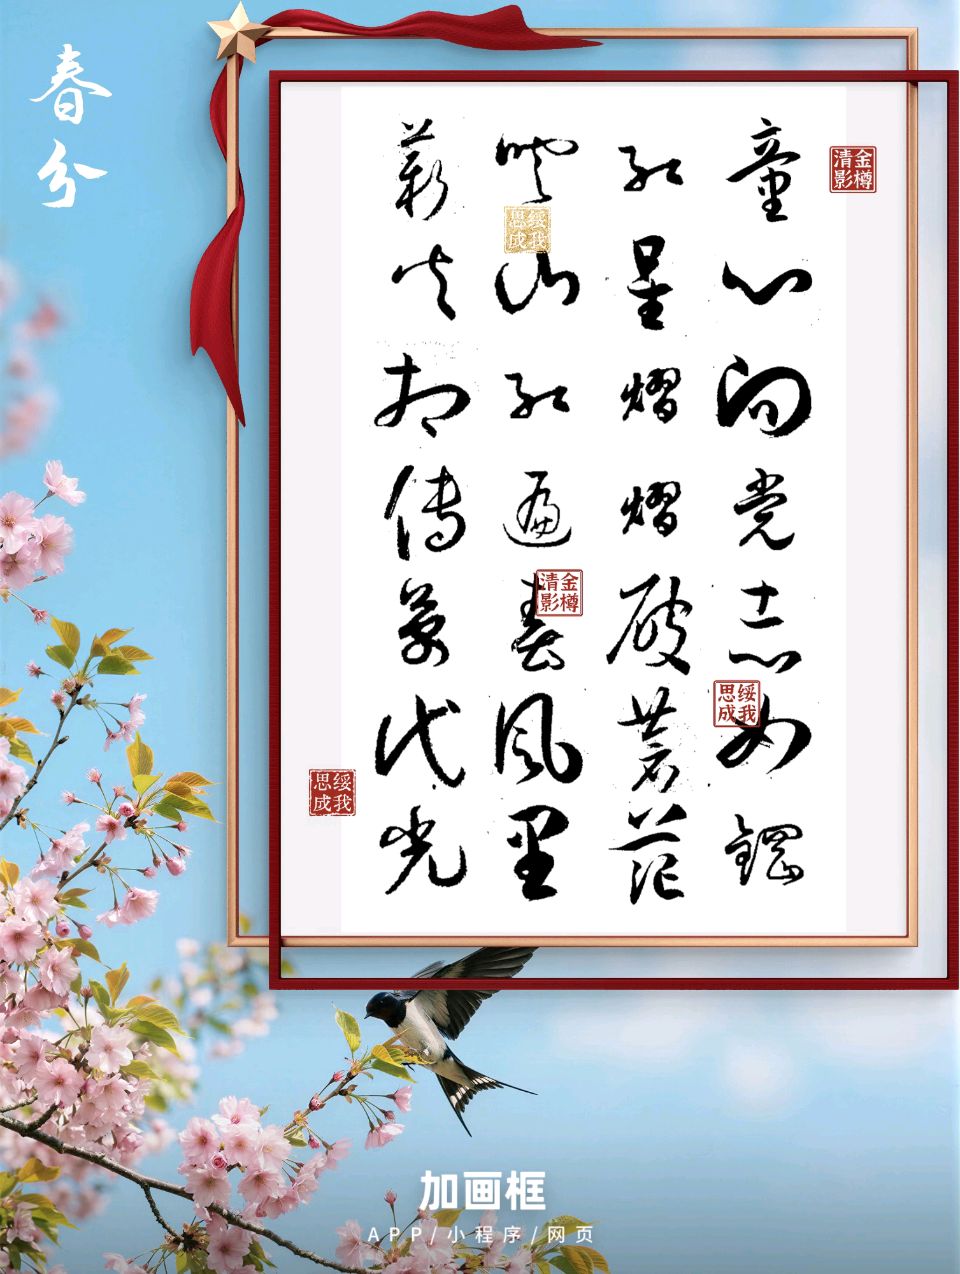 春分
童心向党志如鋼
红星熠熠破苍茫
映山红遍春风里
薪火相傳萬代光
金樽清影
绥我思成
金樽清影
绥我思成
绥我思成
加画框
APP/小程序/网页